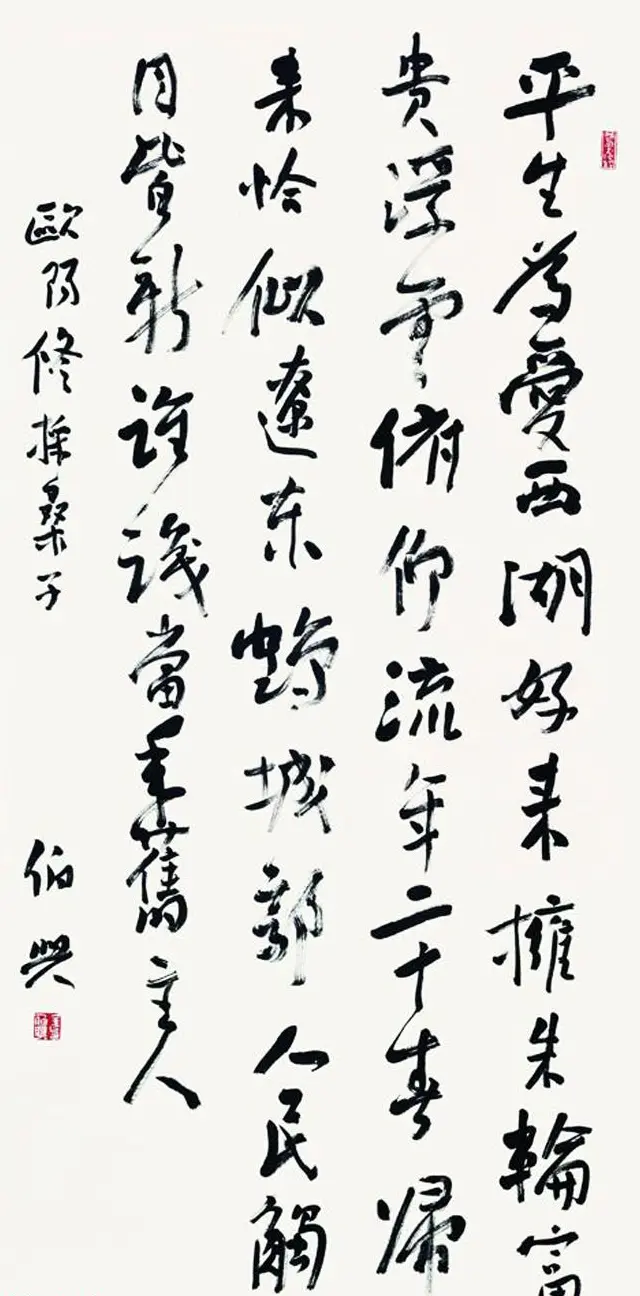 平生為愛西湖好来擁朱輪富
貴浮雲俯仰流年二十春歸
来恰似遼東鶴城郭人民觸
目皆新誰識當年舊主人
歐陽修採桑子
伯興